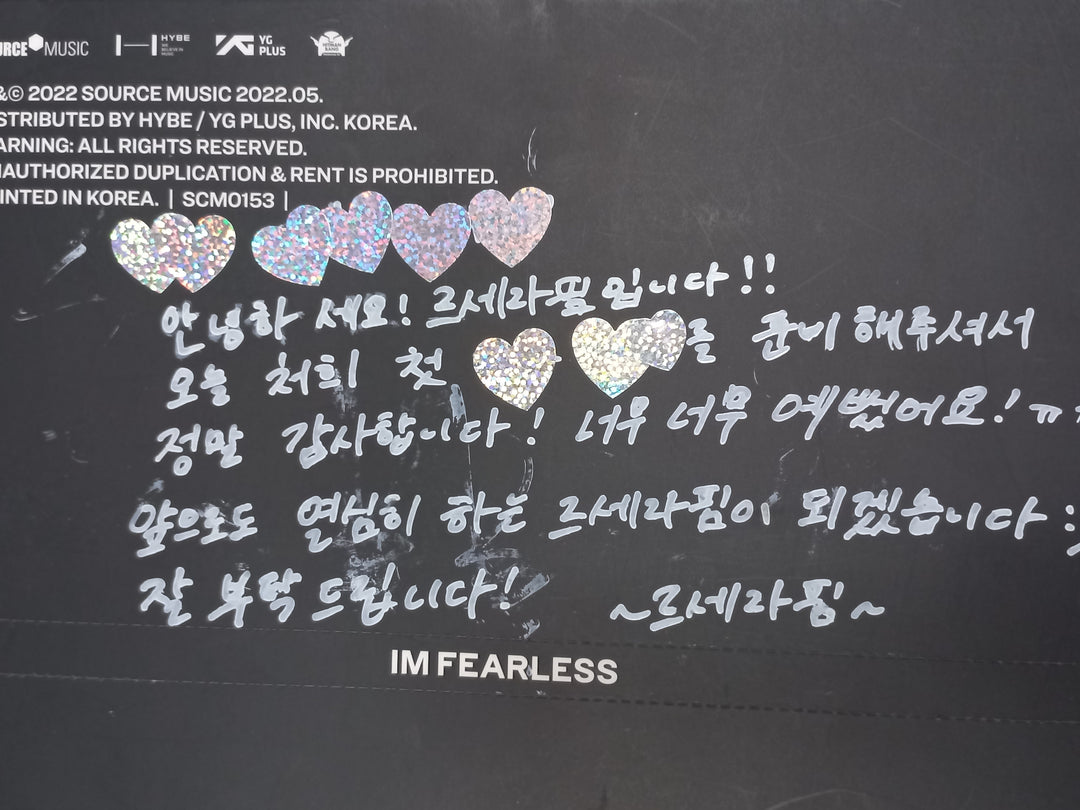 URCE MUSIC HYBE WE BELIEVE IN MUSIC YG PLUS
&© 2022 SOURCE MUSIC 2022.05.
STRIBUTED BY HYBE / YG PLUS, INC. KOREA.
ARNING: ALL RIGHTS RESERVED.
NAUTHORIZED DUPLICATION & RENT IS PROHIBITED.
INTED IN KOREA. | SCM0153 |
안녕하세요! 르세라핌입니다!!
오늘 저희 첫 를 준비해주셔서
정말 감사합니다! 너무 너무 예뻤어요! ㅠ
앞으로도 열심히 하는 르세라핌이 되겠습니다 :
잘 부탁드립니다! ~르세라핌~
IM FEARLESS